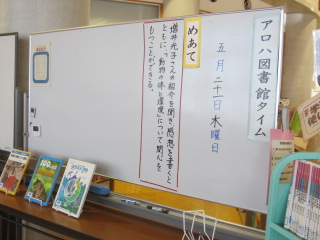 アロハ図書館タイム
五月二十一日 木曜日
めあて
増井光子さんの紹介を聞き、感想を書くと
ともに、「動物の体と環境」について関心を
もつことができる。